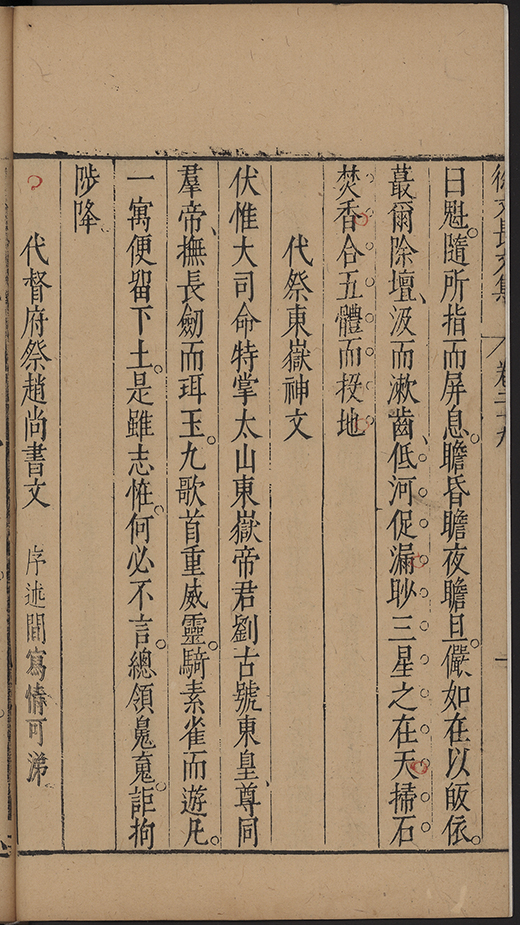 徐文長文集 卷二十九
曰魁隨所指而屏息瞻昏瞻夜瞻旦儼如在以皈依
蕞爾除壇汲而漱齒低河促漏眇三星之在天掃石
焚香合五體而投地
代祭東嶽神文
伏惟大司命特掌太山東嶽帝君劉古號東皇尊同
羣帝撫長劒而珥玉九歌首重威靈騎素雀而遊凡
一寓便留下土是雖志恠何必不言總領詎拘
陟降
代督府祭趙尚書文 序述間寫情可涕